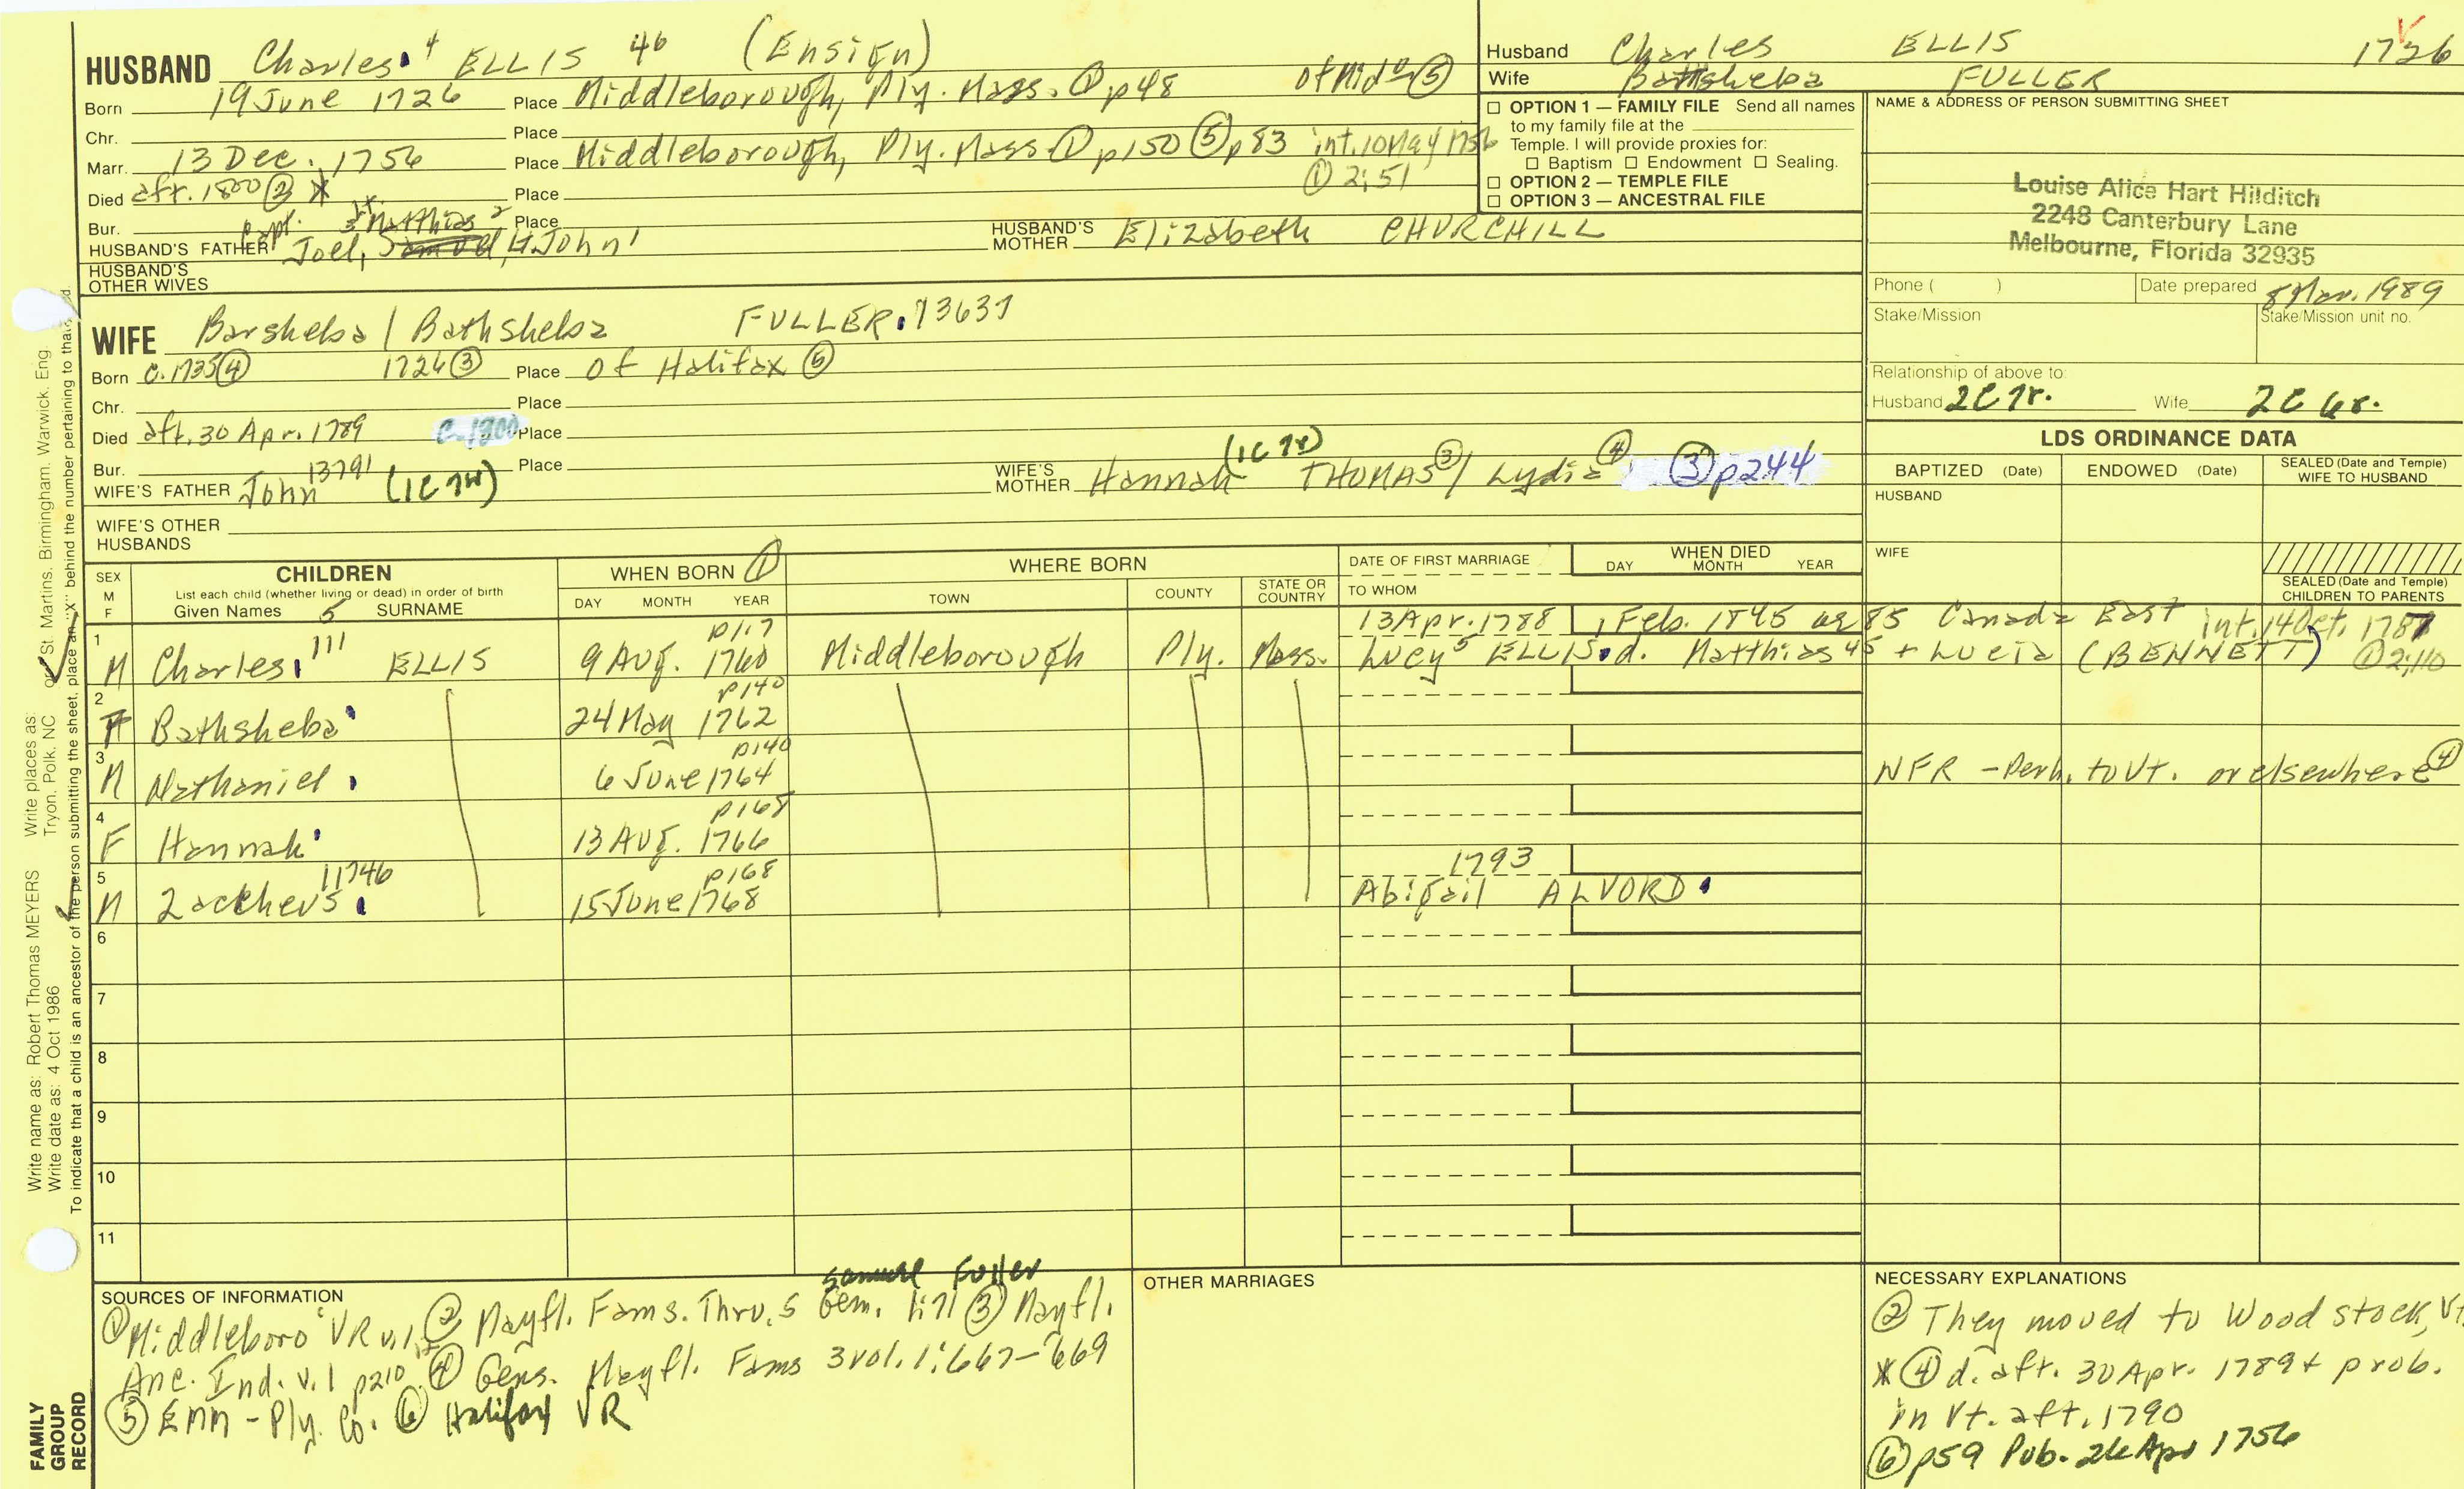 HUSBAND Charles 4 ELLIS 46 (Ensign)
Born 19 June 1726 Place Middleborough, Ply. Mass. ① p48 of Mid° ⑤
Chr. Place
Marr. 13 Dec. 1756 Place Middleborough, Ply. Mass ① p150 ⑤ p83 int. 10 May 1756
① 2:51
Died aft. 1800 ② * Place
Bur. Place
Capt. Jr. 3 Matthias 2
HUSBAND'S FATHER Joel, Lt. John 1
HUSBAND'S MOTHER Elizabeth CHURCHILL
HUSBAND'S OTHER WIVES
Husband Charles ELLIS 1726
Wife Bathsheba FULLER
☐ OPTION 1 — FAMILY FILE Send all names
to my family file at the
Temple. I will provide proxies for:
☐ Baptism ☐ Endowment ☐ Sealing.
☐ OPTION 2 — TEMPLE FILE
☐ OPTION 3 — ANCESTRAL FILE
NAME & ADDRESS OF PERSON SUBMITTING SHEET
Louise Alice Hart Hilditch
2248 Canterbury Lane
Melbourne, Florida 32935
Phone ( ) Date prepared 8 Mar. 1989
Stake/Mission Stake/Mission unit no.
Relationship of above to:
Husband 2C7r. Wife 2C6r.
WIFE Barsheba / Bathsheba FULLER. 13637
Born c. 1735 ④ 1726 ③ Place of Halifax ⑤
Chr. Place
Died aft. 30 Apr. 1789 c. 1800 Place
Bur. Place
WIFE'S FATHER John 13791 (1C7r)
WIFE'S MOTHER Hannah (1C7r) THOMAS ③ / Lydia ④ ③ p244
WIFE'S OTHER HUSBANDS
LDS ORDINANCE DATA
BAPTIZED (Date) ENDOWED (Date) SEALED (Date and Temple) WIFE TO HUSBAND
HUSBAND
WIFE
SEALED (Date and Temple) CHILDREN TO PARENTS
SEX M F
CHILDREN
List each child (whether living or dead) in order of birth
Given Names 5 SURNAME
WHEN BORN ①
DAY MONTH YEAR
WHERE BORN
TOWN COUNTY STATE OR COUNTRY
DATE OF FIRST MARRIAGE
TO WHOM
WHEN DIED
DAY MONTH YEAR
p117 13 Apr. 1788 1 Feb. 1845 ae 85 Canada East int. 14 Oct. 1787
1 M Charles 111 ELLIS 9 Aug. 1760 Middleborough Ply. Mass. Lucy 5 ELLIS d. Matthias 45 + Lucia (BENNETT) ① 2:110
p140
2 F Bathsheba 24 May 1762
p140
3 M Nathaniel 6 June 1764 NFR - Perh. to Vt. or elsewhere ④
p168
4 F Hannah 13 Aug. 1766
11746 p168 1793
5 M Zaccheus 15 June 1768 Abigail ALVORD
6
7
8
9
10
11
SOURCES OF INFORMATION
Samuel Fuller
① Middleboro VR v.1, 2 ② Mayfl. Fams. Thru. 5 Gen. ③ Mayfl.
Anc. Ind. v.1 p210 ④ Gens. Mayfl. Fams 3 vol. 1:667-669
⑤ EMM - Ply. Co. ⑥ Halifax VR
OTHER MARRIAGES
NECESSARY EXPLANATIONS
② They moved to Woodstock, Vt.
* ④ d. aft. 30 Apr. 1789 + prob.
in Vt. aft. 1790
⑥ p59 Pub. 26 Apr 1756
FAMILY GROUP RECORD
Write name as: Robert Thomas MEYERS Write places as: Tryon, Polk, NC
Write date as: 4 Oct 1986 or St. Martins, Birmingham, Warwick, Eng.
To indicate that a child is an ancestor of the person submitting the sheet, place an "X" behind the number pertaining to that